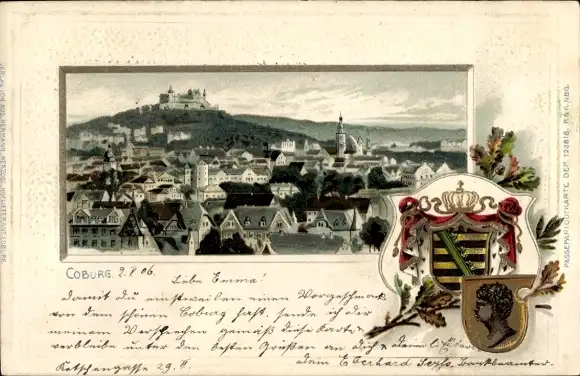 COBURG. 2.8.06.
Liebe Emma!
damit du einstweilen einen Vorgeschmack
von dem schönen Coburg hast, sende ich dir
meinem Versprechen gemäß diese Karte
verbleibe unter den besten Grüßen an dich & deine l.
dein Eberhard Bankbeamter.
Ketschengasse 29. II.
PASSEPARTOUTKARTE DEP. 123818. R & K. NBG.